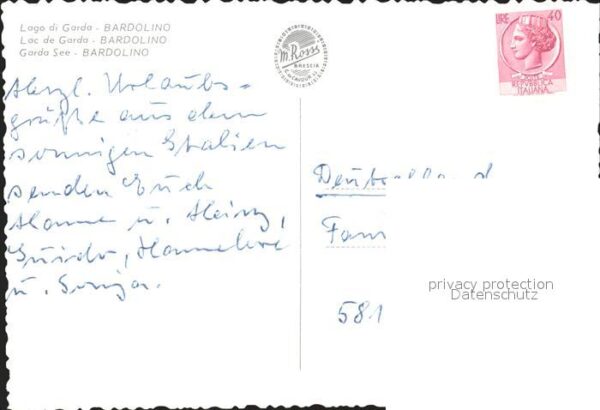 Lago di Garda - BARDOLINO
Lac de Garda - BARDOLINO
Garda See - BARDOLINO
M. Rossi
BRESCIA
LIRE 40
REPVBBLICA
ITALIANA
Herzl. Urlaubs-
grüße aus dem
sonnigen Italien
senden Euch
Hanne u. Heinz,
Guido, Hannelore
u. Sonja.
Deutschland
Fam
581
privacy protection
Datenschutz